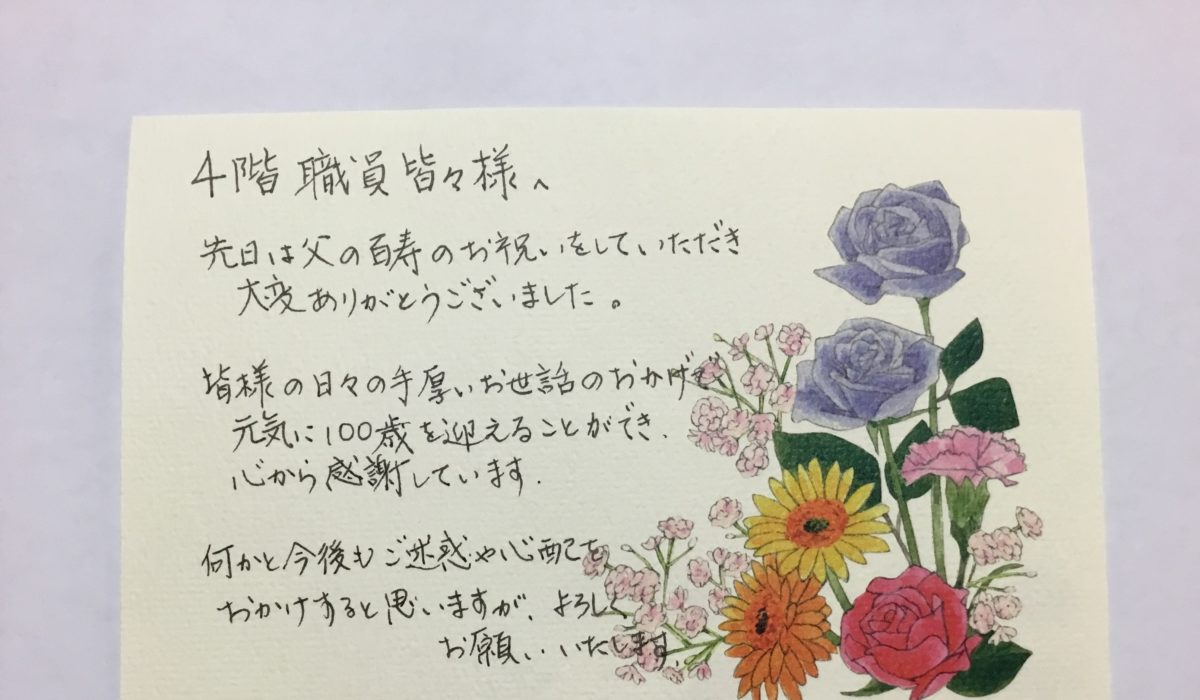 4階 職員皆々様へ
先日は父の百寿のお祝いをしていただき
大変ありがとうございました。
皆様の日々の手厚いお世話のおかげで
元気に100歳を迎えることができ、
心から感謝しています.
何かと今後もご迷惑や心配を
おかけすると思いますが、よろしく
お願いいたします.